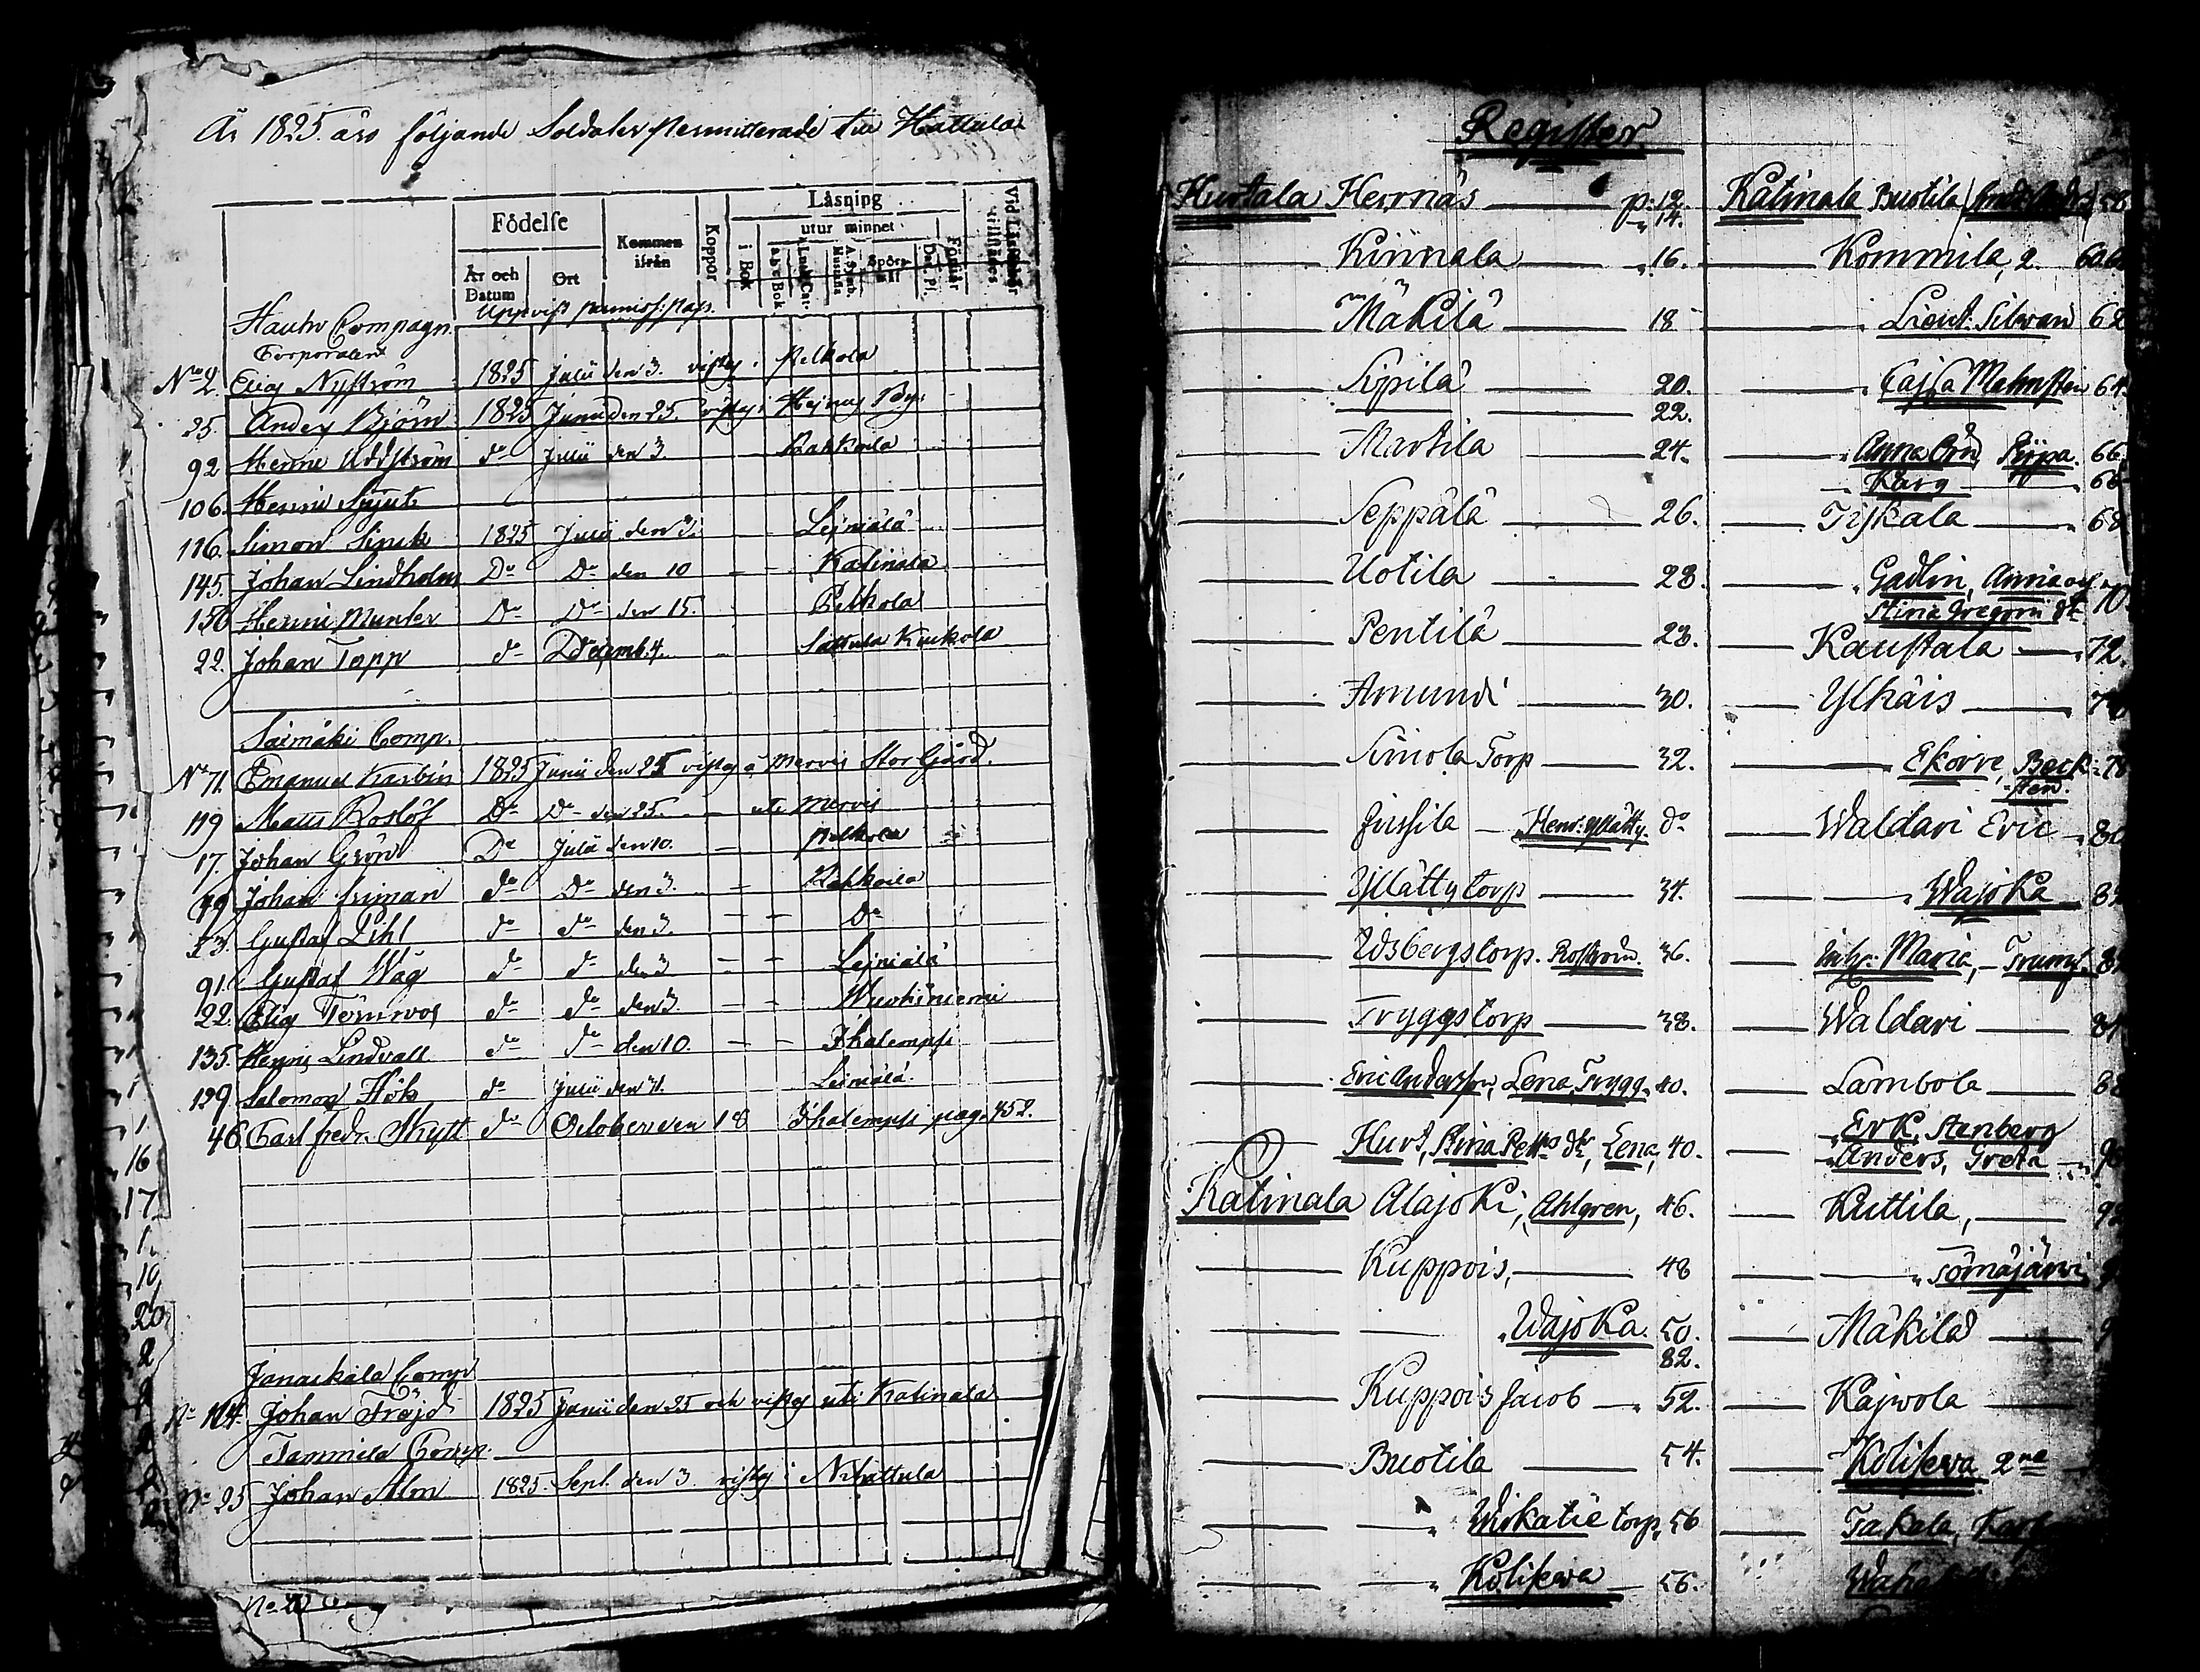 År 1825 äro följande Soldater permitterade till Hattula
Födelse
Kommen ifrån
Koppor
Läsning
utur minnet
i Bok
År och Datum
Ort
Uppvist permiss: pass.
Hauho Compagn.
Corporalen
No 2. Eric Nyström 1825 Julii den 3. vistas i Pelkola
25. Anders Björn 1825 Junii den 25. vistas i
92 Henric Uddström do Julii den 3. Rahkoila
106. Henric
116. Simon 1825 Julii den 3. Leiniälä
145. Johan Lindholm Do Do den 10 Katinala
150 Henric Munter Do Do den 15. Pelkola
22. Johan Topp do Decemb. 4. Sattula Kuckola
Saimäki Comp.
No 71. Emanuel Karbin 1825 Junii den 25 vistas å Mervis Stor Gård.
119 Matts Roslöf Do Do den 25. uti Mervis
17. Johan Grön Do Julii den 10. Pelkola
49 Johan Friman do Do den 3. Rahkoila
53. Gustaf Pihl do do den 3. Do
91. Gustaf Wåg do do den 3 Leiniälä
22. Törnroos do do den 3. Wuohiniemi
135. Henric Lindvall do do den 10. Ihalempi
129 Salomon Hök do Julii den 31. Leiniälä
46 Carl Fredr. Skytt do October den 18 Ihalempi pag. 452.
Janackala Comp
No 124. Johan Fröjd 1825 Junii den 25 och vistas uti Katinala
Tammela Comp.
No 25 Johan Alm 1825. Sept. den 3 vistas i N. Hattula
Register
Hurtala Herrnäs p. 12.
" 14.
Kinnala " 16.
Mäkilä 18
Sipilä 20.
22.
Martila 24.
Seppälä 26.
Uotila 28.
Pentilä 28.
Amundi 30.
Simola Torp 32.
Jussila Henr: Yllätty do
Yllätty torp 34.
Udsbergs torp. Rosström. 36.
Tryggs torp 38.
Eric Andersson, Lena Trygg 40.
Hurt, Stina Petts dr, Lena, 40.
Katinala Alajoki, Ahlgren, 46.
Kuppois, 48
" Wajoka. 50.
82.
Kuppois Jacob " 52.
Buotila 54.
" Wirkatie torp, 56
" Koliseva 56.
Katinala Buotila
Kommila, 2.
" Lieut. Silwan 62
" Cajsa Malmsten 64.
" Anna Brit Piipa. 66.
" Karg
Tyskala 68
" Gadlin, Anna och
Stina Gregori dr 70.
Kaustala 72.
Ylhäis
" Ekorre, Beck-
sten.
Waldari Eric
" Wajoka
Enk: Maria, Trumf.
Waldari
Lambola
" Erk, Stenberg
" Anders, Greta
Kuttila,
" Tömäjärvi
Mäkilä
Kajvola
Koliseva 2ne
Takala,